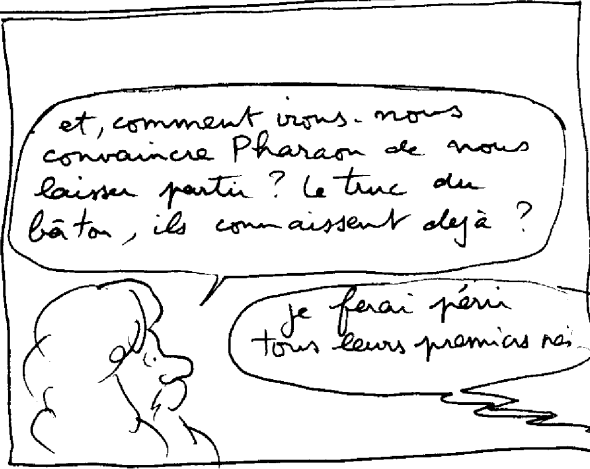 et, comment irons-nous
convaincre Pharaon de nous
laisser partir ? le truc du
bâton, ils connaissent dejà ?
je ferai périr
tous leurs premiers nés